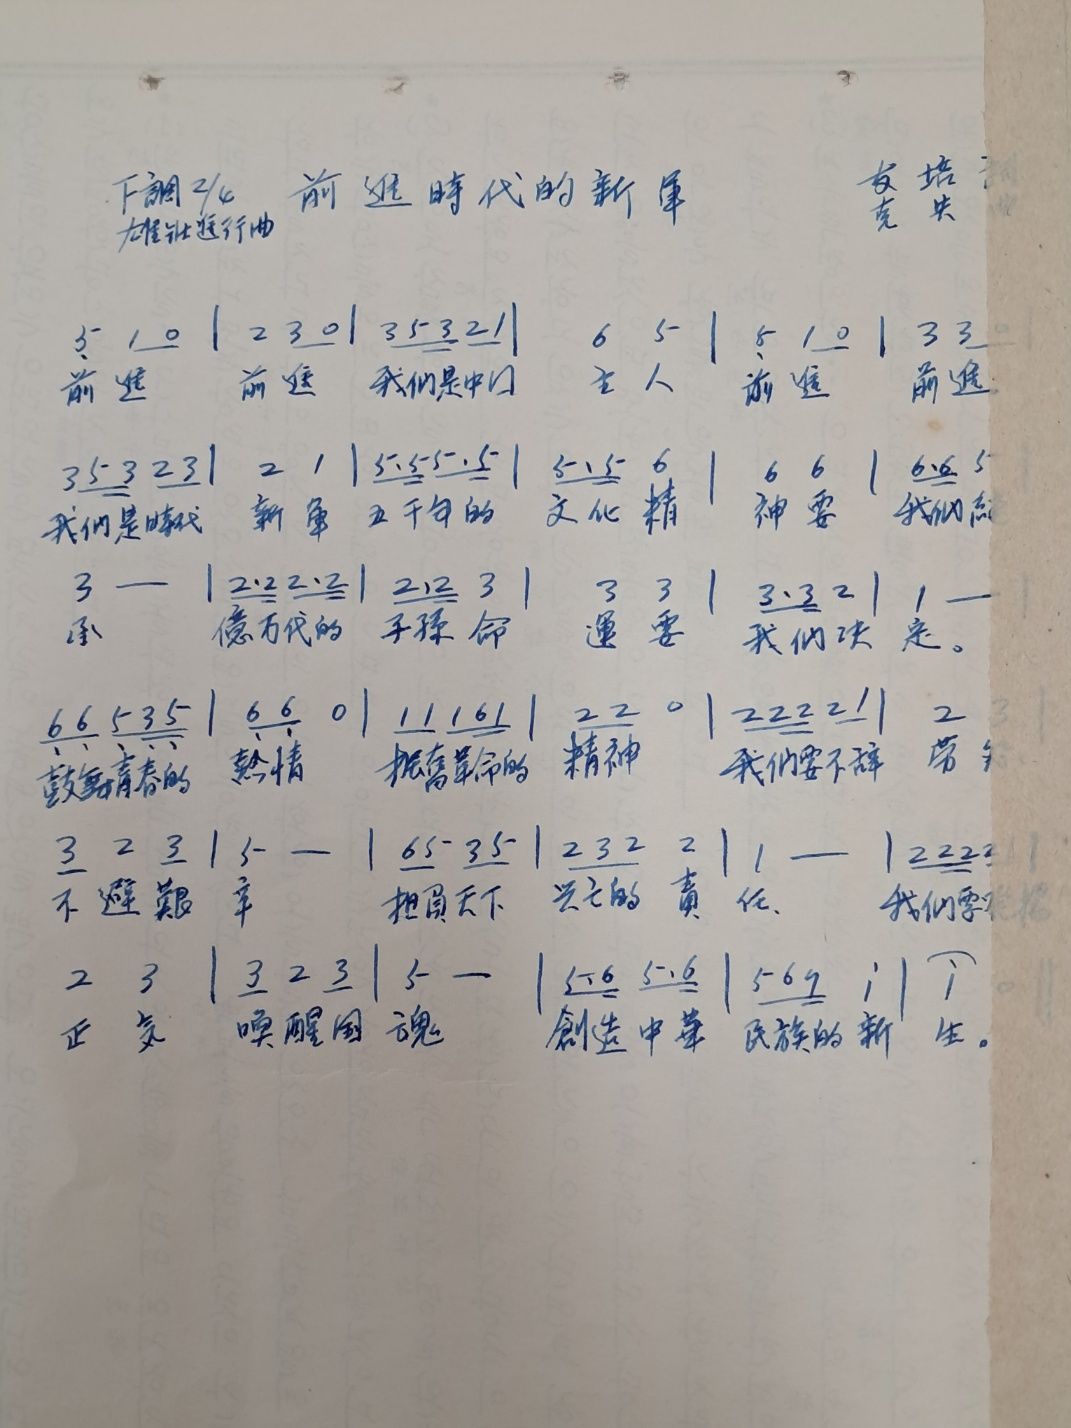 F調 2/4 前進時代的新軍 友培
雄壯進行曲 克
5 1 0 | 2 3 0 | 3 5 3 2 1 | 6 5 | 5 1 0 | 3 3 0 |
前進 前進 我们是中囗 主人 前進 前進
3 5 3 2 3 | 2 1 | 5·5 5·5 | 5·5 6 | 6 6 | 6·6 5
我们是時代 新軍 五千年的 文化精 神要 我们
3 — | 2·2 2·2 | 2·2 3 | 3 3 | 3·3 2 | 1 — |
承 億万代的 子孫命 運要 我们决 定。
6 6 5 3 5 | 6 6 0 | 1 1 1 6 1 | 2 2 0 | 2 2 2 2 1 | 2 3 |
鼓舞青春的 熱情 振奮革命的 精神 我们要不辞 劳
3 2 3 | 5 — | 6 5 3 5 | 2 3 2 2 | 1 — | 2 2 2 2 1 |
不避艱 辛 担負天下 兴亡的責 任、 我们要
2 3 | 3 2 3 | 5 — | 5·6 5·6 | 5 6 7 i | i 0 ||
正气 喚醒国 魂 創造中華 民族的新 生。